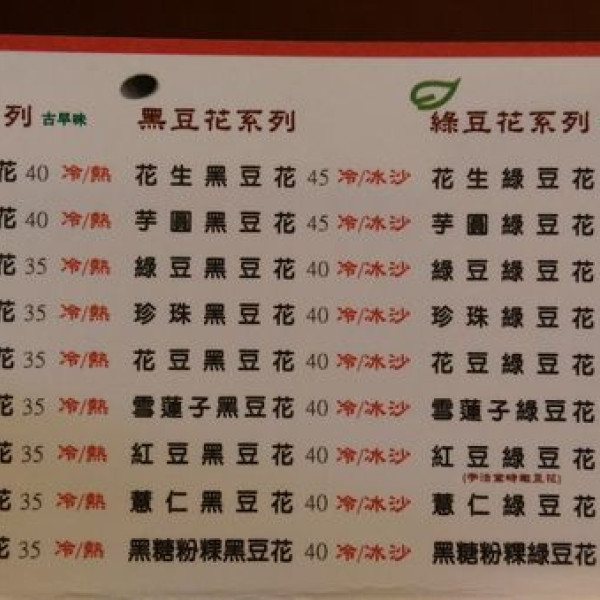 列 古早味 黑豆花系列 綠豆花系列
花 40 冷/熱 花生黑豆花 45 冷/冰沙 花生綠豆花
花 40 冷/熱 芋圓黑豆花 45 冷/冰沙 芋圓綠豆花
花 35 冷/熱 綠豆黑豆花 40 冷/冰沙 綠豆綠豆花
花 35 冷/熱 珍珠黑豆花 40 冷/冰沙 珍珠綠豆花
花 35 冷/熱 花豆黑豆花 40 冷/冰沙 花豆綠豆花
花 35 冷/熱 雪蓮子黑豆花 40 冷/冰沙 雪蓮子綠豆花
花 35 冷/熱 紅豆黑豆花 40 冷/冰沙 紅豆綠豆花
花 35 冷/熱 薏仁黑豆花 40 冷/冰沙 薏仁綠豆花
花 35 冷/熱 黑糖粉粿黑豆花 40 冷/冰沙 黑糖粉粿綠豆花